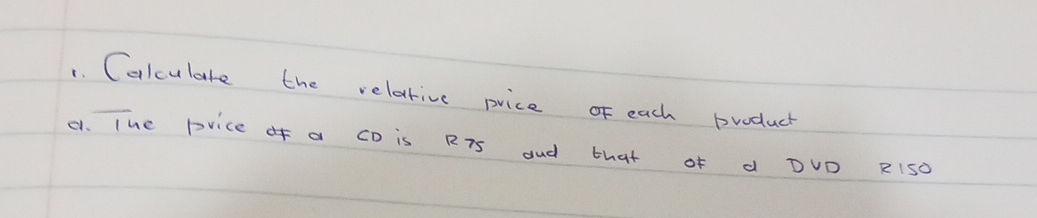 1. Calculate the relative price of each product
a. The price of a CD is R75 and that of a DVD R150